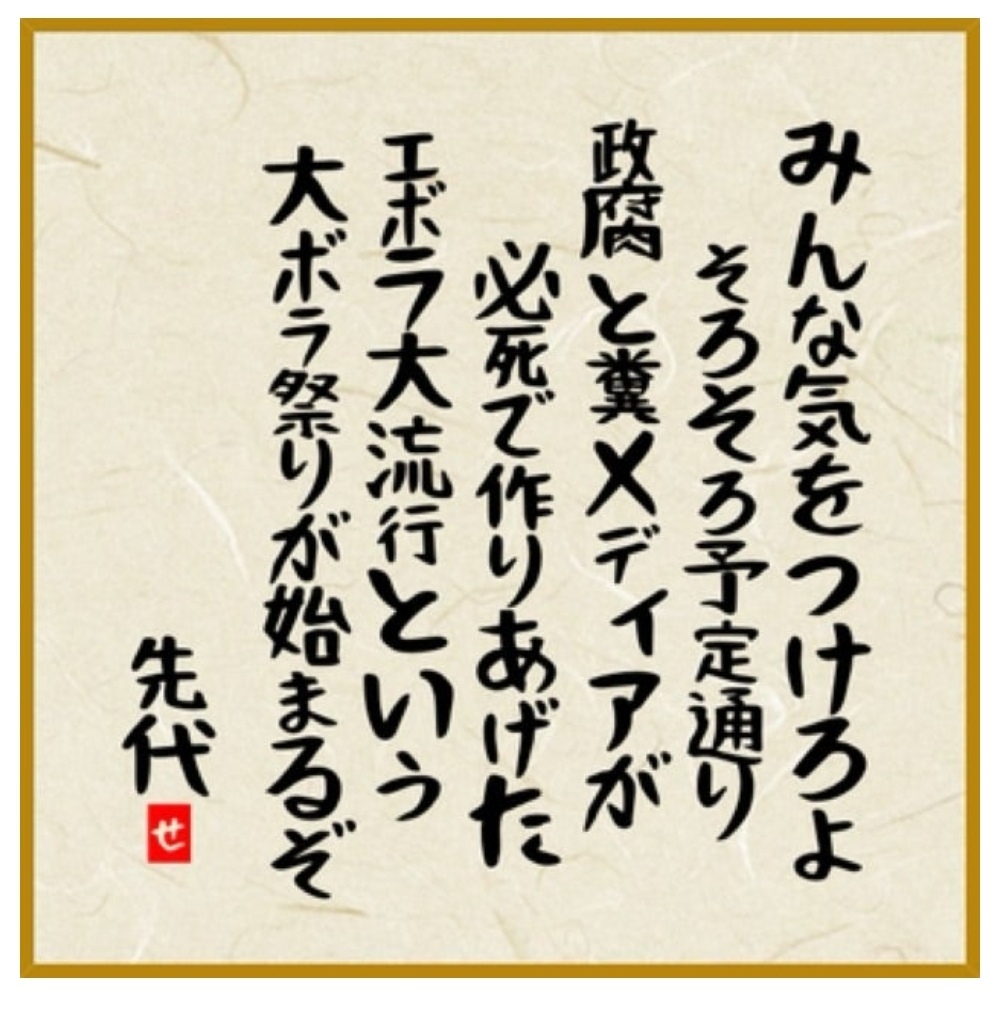 みんな気をつけろよ
そろそろ予定通り
政腐と糞メディアが
必死で作りあげた
エボラ大流行という
大ボラ祭りが始まるぞ
先代
せ